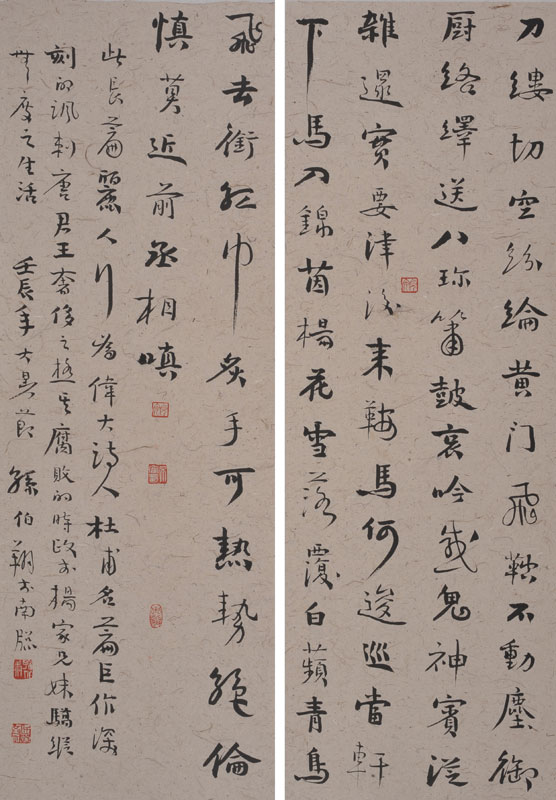 刀縷切空紛綸黄门飛鞚不動塵御
厨络繹送八珍簫鼓哀吟感鬼神賓從
雜遝實要津後来鞍馬何逡巡當軒
下馬入錦茵楊花雪落覆白蘋青鳥
飛去銜红巾炙手可热勢絕倫
慎莫近前丞相嗔
此长篇麗人行为偉大詩人杜甫名篇巨作深
刻的讽刺唐君王奢侈之極其腐敗的時政与楊家兄妹驕縱
無度之生活 壬辰年大暑節 孫伯翔于南牕